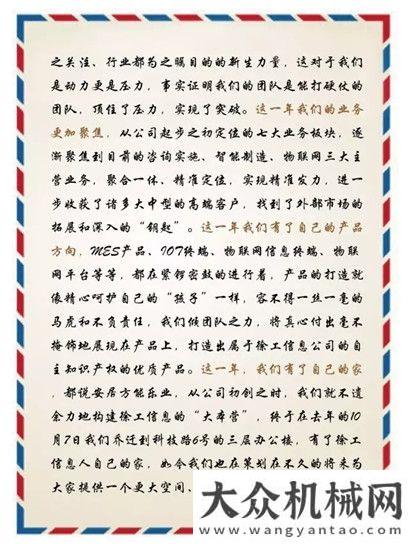 之关注、行业都为之瞩目的的新生力量，这对于我们
是动力更是压力，事实证明我们的团队是能打硬仗的
团队，顶住了压力，实现了突破。这一年我们的业务
更加聚焦，从公司起步之初定位的七大业务板块，逐
渐聚焦到目前的咨询实施、智能制造、物联网三大主
营业务，聚合一体、精准定位，实现精准发力，进一
步收获了诸多大中型的高端客户，找到了外部市场的
拓展和深入的“钥匙”。这一年我们有了自己的产品
方向，MES产品、IOT终端、物联网信息终端、物联
网平台等等，都在紧锣密鼓的进行着，产品的打造就
像精心呵护自己的“孩子”一样，容不得一丝一毫的
马虎和不负责任，我们倾团队之力，将真心付出毫不
掩饰地展现在产品上，打造出属于徐工信息公司的自
主知识产权的优质产品。这一年，我们有了自己的家
，都说安居方能乐业，从公司初创之时，我们就不遗
余力地构建徐工信息的“大本营”，终于在去年的10
月7日我们乔迁到科技路6号的三层办公楼，有了徐工
信息人自己的家，如今我们也在策划在不久的将来为
大家提供一个更大空间、
大众机械网
www.wangyantao.com